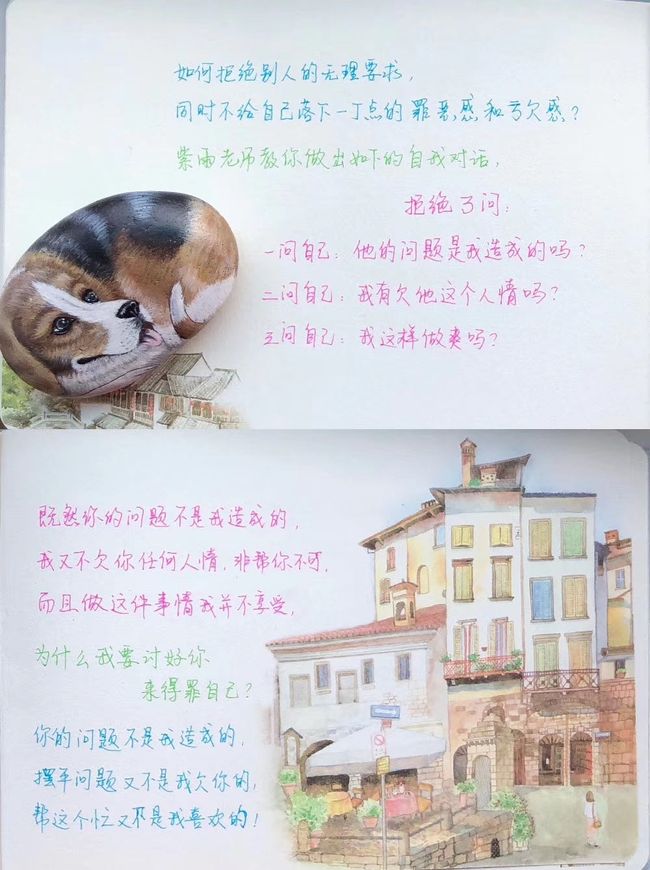 如何拒绝别人的无理要求，
同时不给自己落下一丁点的罪恶感和亏欠感？
紫雨老师教你做出如下的自我对话，
拒绝了问：
一问自己：他的问题是我造成的吗？
二问自己：我有欠他这个人情吗？
三问自己：我这样做爽吗？
既然你的问题不是我造成的，
我又不欠你任何人情，非帮你不可，
而且做这件事情我并不享受，
为什么我要讨好你
来得罪自己？
你的问题不是我造成的，
摆平问题又不是我欠你的，
帮这个忙又不是我喜欢的！